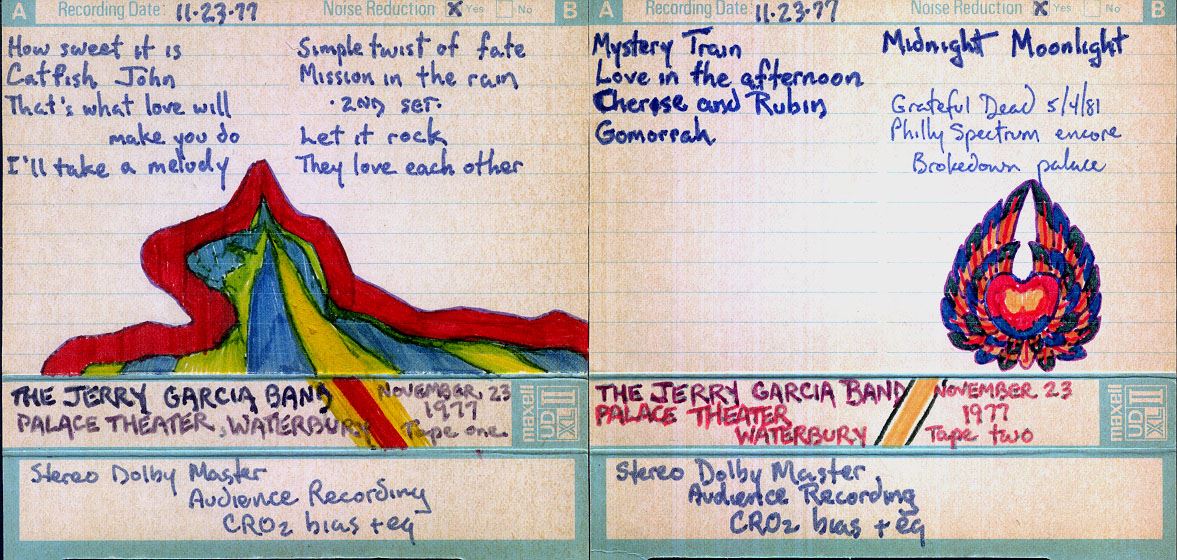 A Recording Date: 11.23.77 Noise Reduction X Yes No B
How sweet it is
Catfish John
That's what love will
make you do
I'll take a melody
Simple twist of fate
Mission in the rain
·2ND SET·
Let it rock
They love each other
THE JERRY GARCIA BAND
PALACE THEATER, WATERBURY
NOVEMBER 23
1977
Tape one
maxell
UD
XL II
Stereo Dolby Master
Audience Recording
CRO2 bias + eq
A Recording Date: 11.23.77 Noise Reduction X Yes No B
Mystery Train
Love in the afternoon
Cherise and Rubin
Gomorrah
Midnight Moonlight
Grateful Dead 5/4/81
Philly Spectrum encore
Brokedown palace
THE JERRY GARCIA BAND
PALACE THEATER
WATERBURY
NOVEMBER 23
1977
Tape two
maxell
UD
XL II
Stereo Dolby Master
Audience Recording
CRO2 bias + eq